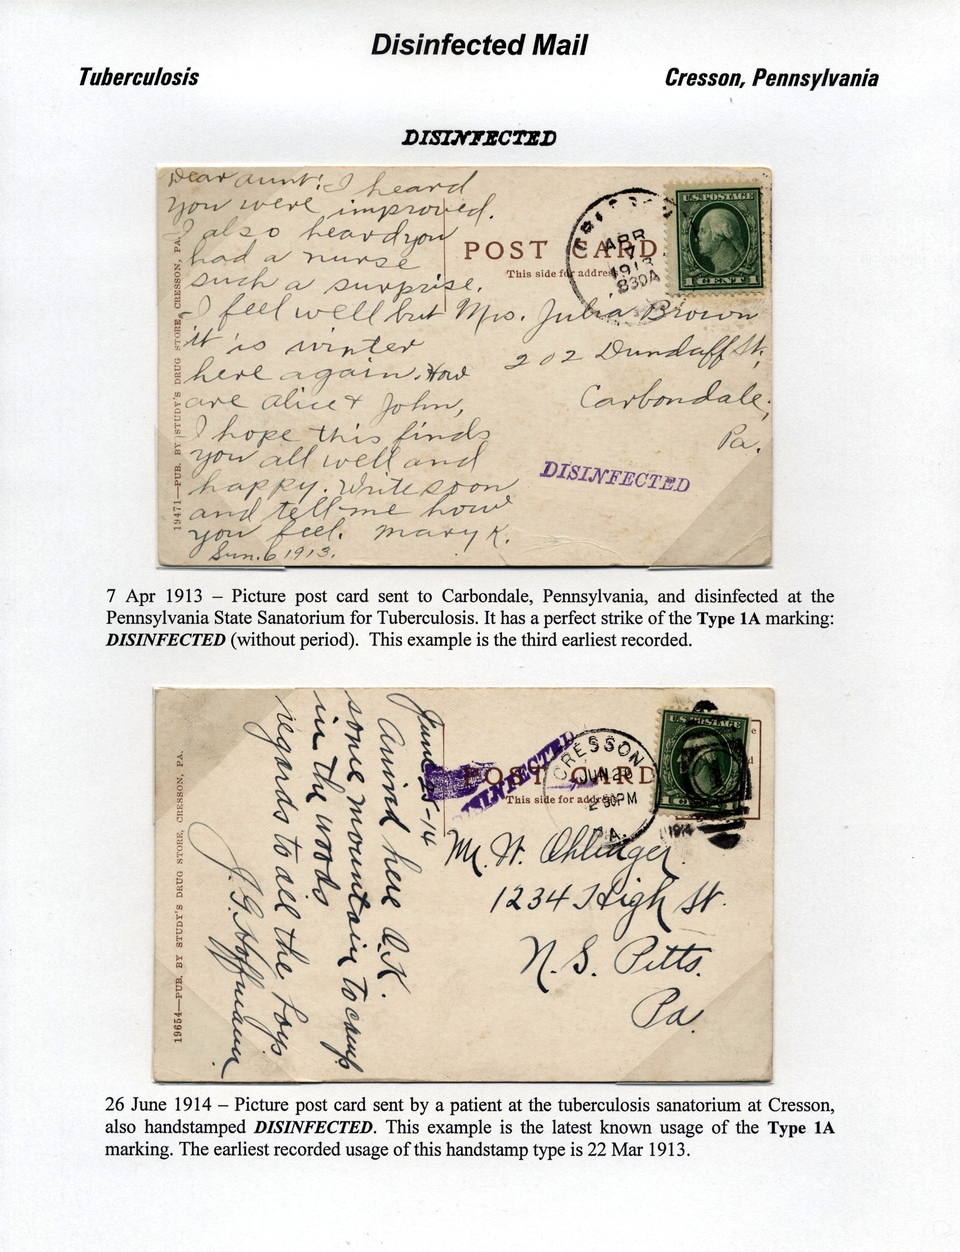 Disinfected Mail
Tuberculosis
Cresson, Pennsylvania
DISINFECTED
Dear aunt! I heard
you were improved.
I also heard you
had a nurse
such a surprise.
I feel well but
it is winter
here again. How
are Alice & John,
I hope this finds
you all well and
happy. Write soon
and tell me how
you feel. Mary K.
Sun. 6 1913.
19471—PUB. BY STUDY'S DRUG STORE, CRESSON, PA.
POST CARD
This side for address
APR
7
1913
830A
U.S. POSTAGE
1 CENT 1
Mrs. Julia Brown
202 Dundaff St,
Carbondale,
Pa.
DISINFECTED
7 Apr 1913 – Picture post card sent to Carbondale, Pennsylvania, and disinfected at the
Pennsylvania State Sanatorium for Tuberculosis. It has a perfect strike of the Type 1A marking:
DISINFECTED (without period). This example is the third earliest recorded.
19654—PUB. BY STUDY'S DRUG STORE, CRESSON, PA.
Arrived here O.K.
some mountain to camp
in the woods
regards to all the boys
J. G. Hoffmann
DISINFECTED
POST CARD
This side for address
CRESSON
JUN
PM
PA.
1914
U.S. POSTAGE
Mr. W. Ohlinger.
1234 High St.
N. S. Pitts.
Pa.
26 June 1914 – Picture post card sent by a patient at the tuberculosis sanatorium at Cresson,
also handstamped DISINFECTED. This example is the latest known usage of the Type 1A
marking. The earliest recorded usage of this handstamp type is 22 Mar 1913.